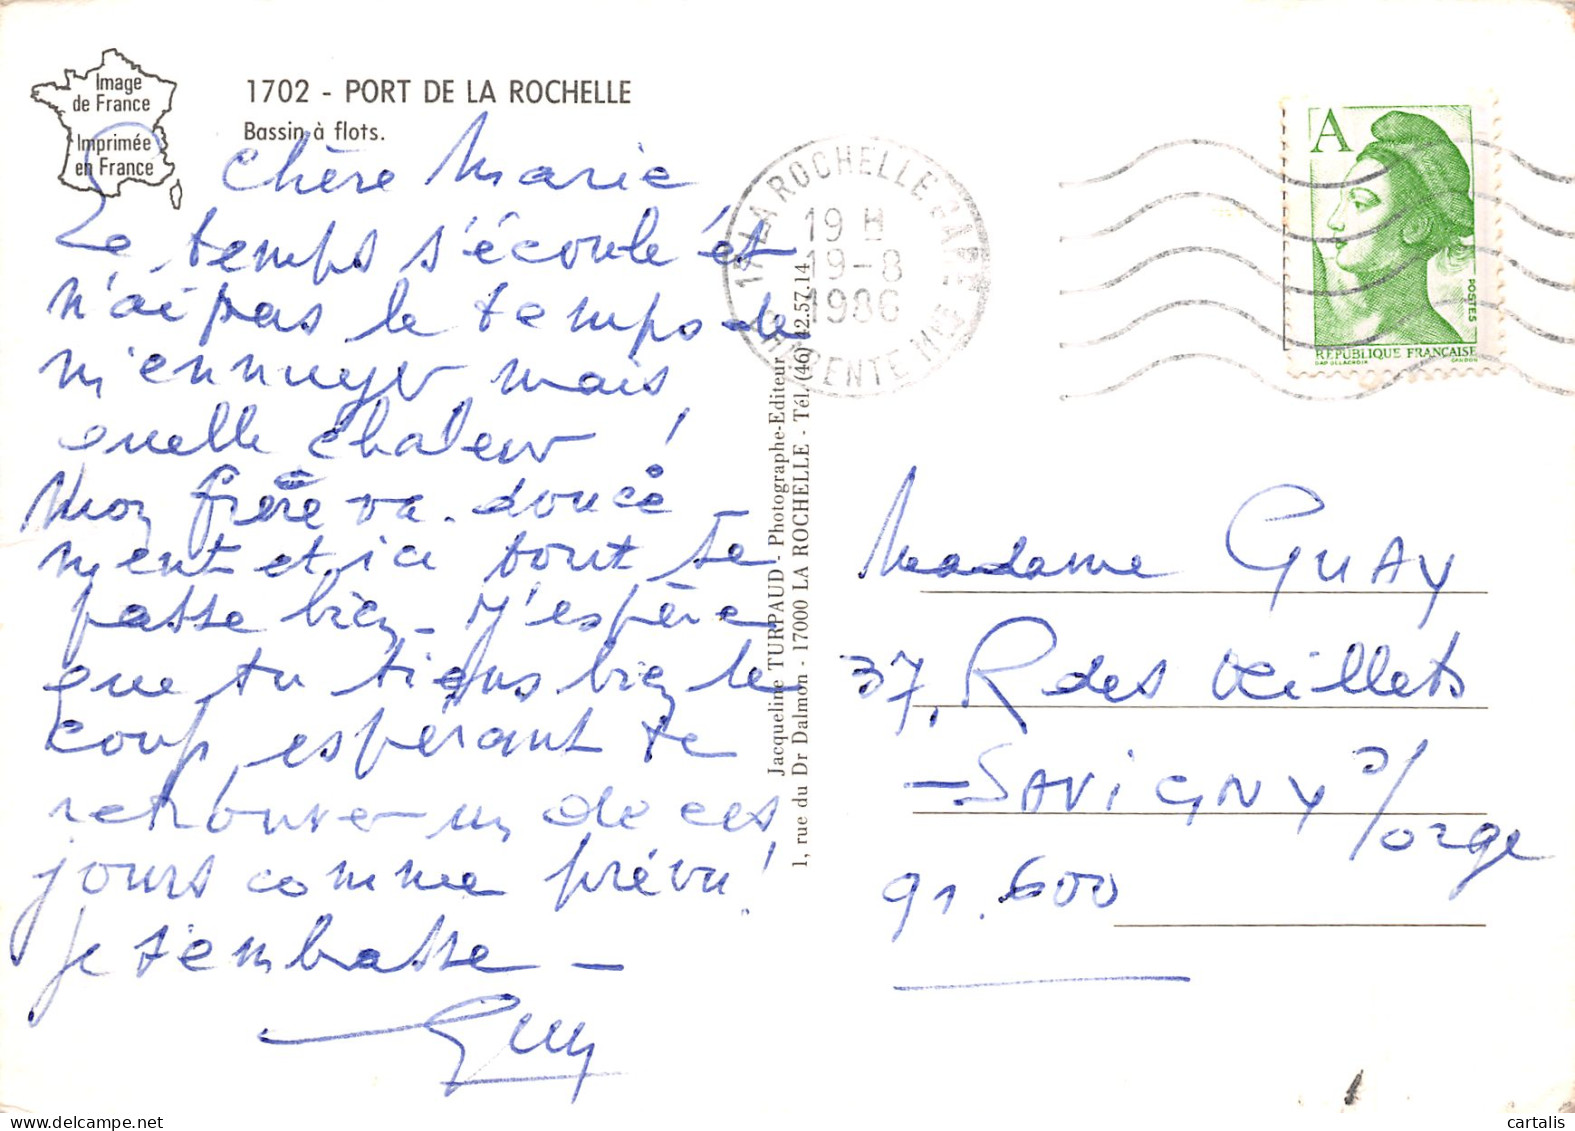 Image
de France
Imprimée
en France
1702 - PORT DE LA ROCHELLE
Bassin à flots.
Chère Marie
Le temps s'écoule et
n'ai pas le temps de
m'ennuyer mais
quelle chaleur !
Mon frère va doucе-
ment et ici tout se
passe bien - J'espère
que tu tiens bien le
coup, espérant te
retrouver un de ces
jours comme prévu !
Je t'embrasse -
Guy
Jacqueline TURPAUD - Photographe-Editeur
1, rue du Dr Dalmon - 17000 LA ROCHELLE - Tél. (46) 42.57.14
17 LA ROCHELLE GARE
19 H
19-8
1986
CHARENTE MME
A
POSTES
RÉPUBLIQUE FRANÇAISE
DAP DELACROIX
GANDON
Madame GUAY
37, R des Oeillets
- SAVIGNY s/
orge
91.600
cartalis